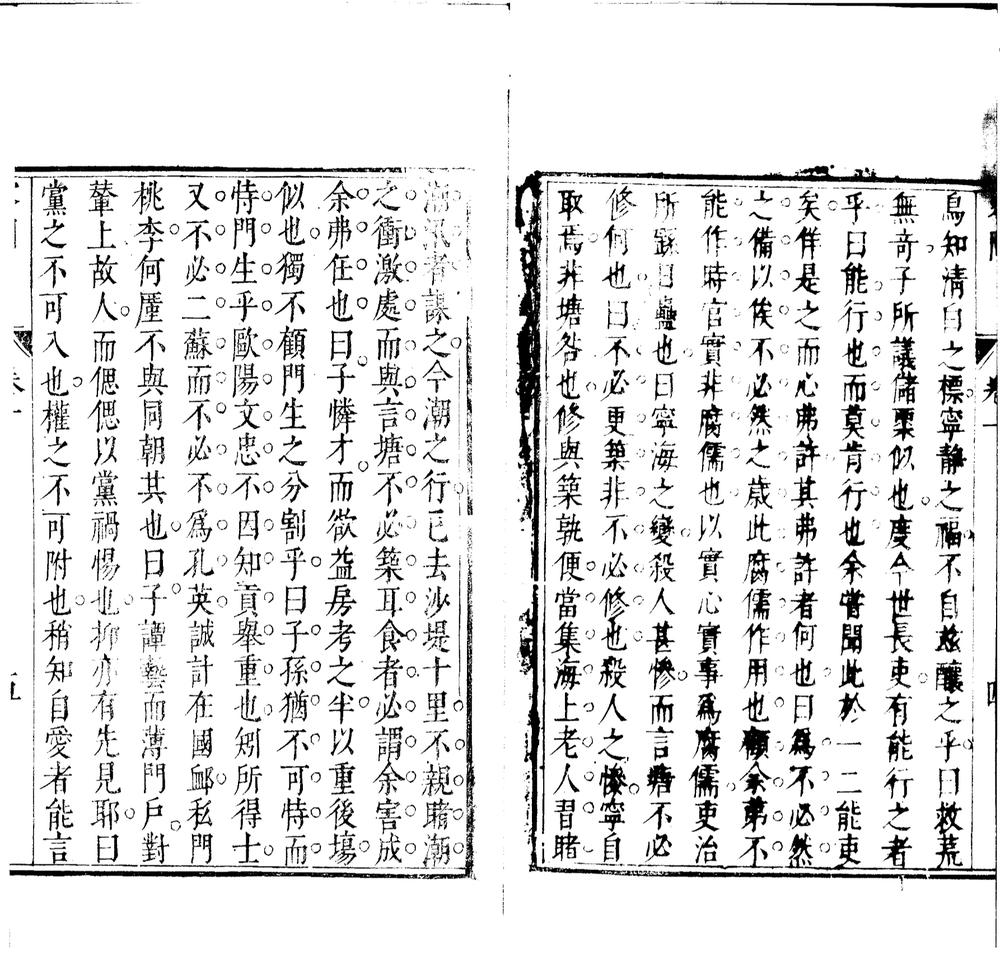 烏知清白之標寧靜之福不自玆釀之乎曰救荒
無奇子所議儲粟似也度今世長吏有能行之者
乎曰能行也而莫肯行也余嘗聞此於一二能吏
矣佯是之而心弗許其弗許者何也曰爲不必然
之備以俟不必然之歲此腐儒作用也顧余第不
能作時官實非腐儒也以實心實事爲腐儒吏治
所繇日蠱也曰寧海之變殺人甚慘而言塘不必
修何也曰不必更築非不必修也殺人之慘寧自
取焉非塘咎也修與築孰便當集海上老人習睹
潮汛者謀之今潮之行已去沙堤十里不親睹潮
之衝激處而與言塘不必築耳食者必謂余害成
余弗任也曰子憐才而欲益房考之半以重後場
似也獨不顧門生之分割乎曰子孫猶不可恃而
恃門生乎歐陽文忠不因知貢舉重也矧所得士
又不必二蘇而不必不爲孔英誠計在國卹私門
桃李何厪不與同朝其也曰子譚藝而薄門戶對
輦上故人而偲偲以黨禍惕也抑亦有先見耶曰
黨之不可入也權之不可附也稍知自愛者能言
卷一
四
五